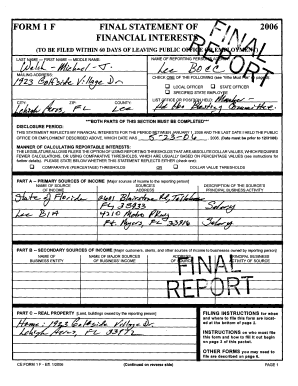 FORM 1 F FINAL STATEMENT OF 2006
FINANCIAL INTERESTS
(TO BE FILED WITHIN 60 DAYS OF LEAVING PUBLIC OFFICE OR EMPLOYMENT)
FINAL REPORT
LAST NAME -- FIRST NAME -- MIDDLE NAME:
Welch - Michael - J.
NAME OF REPORTING PERSON'S AGENCY:
Lee BOCC
MAILING ADDRESS:
1923 Coltside Village Dr
CHECK ONE OF THE FOLLOWING
LOCAL OFFICER STATE OFFICER
SPECIFIED STATE EMPLOYEE
CITY: ZIP: COUNTY:
Lehigh Acres, FL Lee
LIST OFFICE OR POSITION HELD: Member -
Ad Hoc Blasting Committee
**BOTH PARTS OF THIS SECTION MUST BE COMPLETED**
DISCLOSURE PERIOD:
THIS STATEMENT REFLECTS MY FINANCIAL INTERESTS FOR THE PERIOD BETWEEN JANUARY 1, 2006 AND THE LAST DATE I HELD THE PUBLIC
OFFICE OR EMPLOYMENT DESCRIBED ABOVE, WHICH DATE WAS
MANNER OF CALCULATING REPORTABLE INTERESTS:
THE LEGISLATURE ALLOWS FILERS THE OPTION OF USING REPORTING THRESHOLDS THAT ARE ABSOLUTE DOLLAR VALUES, WHICH REQUIRES
FEWER CALCULATIONS, OR USING COMPARATIVE THRESHOLDS, WHICH ARE USUALLY BASED ON PERCENTAGE VALUES (see instructions
for further details). PLEASE STATE BELOW WHETHER THIS STATEMENT REFLECTS EITHER (check one):
COMPARATIVE (PERCENTAGE) THRESHOLDS OR DOLLAR VALUE THRESHOLDS
PART A -- PRIMARY SOURCES OF INCOME [Major sources of income to the reporting person]
NAME OF SOURCE OF INCOME SOURCE'S ADDRESS DESCRIPTION OF THE SOURCE'S PRINCIPAL BUSINESS ACTIVITY
State of Florida
Salary
Lee BIA
Ft. Myers, FL 33916 Salary
PART B -- SECONDARY SOURCES OF INCOME [Major customers, clients, and other sources of income to businesses owned by reporting person]
NAME OF BUSINESS ENTITY NAME OF MAJOR SOURCES OF BUSINESS' INCOME ADDRESS OF SOURCE PRINCIPAL BUSINESS ACTIVITY OF SOURCE
FINAL REPORT
PART C -- REAL PROPERTY [Land, buildings owned by the reporting person]
Home: 1923 Coltside Village Dr.
Lehigh Acres, FL
FILING INSTRUCTIONS for when and where to file this form are located at the bottom of page 2.
INSTRUCTIONS on who must file this form and how to fill it out begin on page 3 of this packet.
OTHER FORMS you may need to file are described on page 6.
CE FORM 1 F - Eff. 1/2006 (Continued on reverse side) PAGE 1